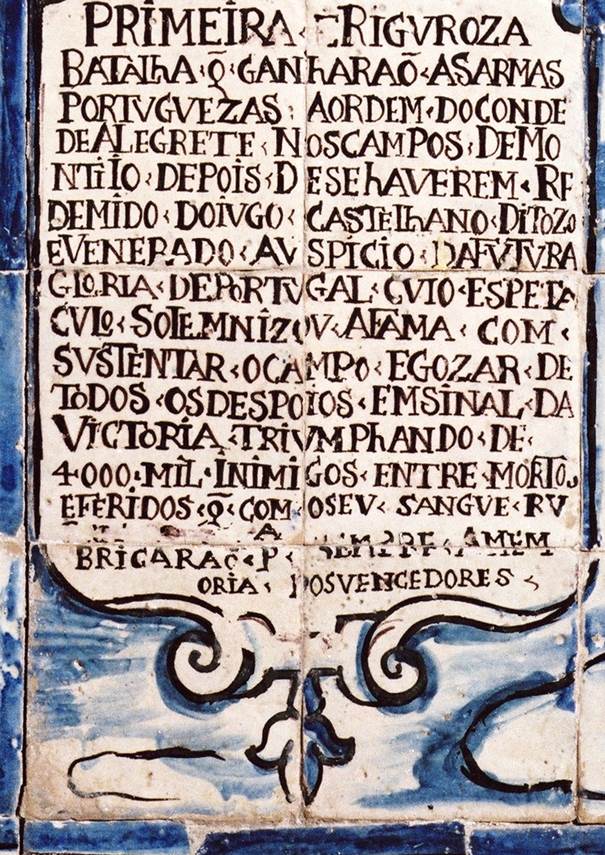 PRIMEIRA E RIGVROZA
BATALhA Q̃ GANhARAÕ AS ARMAS
PORTVGVEZAS AORDEM DO CONDE
DE ALEGRETE NOS CAMPOS DE MO
NTIIO DEPOIS DESE hAVEREM RE
DEMIDO DO IVGO CASTELhANO DITOZO
E VENERADO AVSPICIO DA FVTVRA
GLORIA DE PORTVGAL CVIO ESPETA
CVLO SOTEMNIZOV AFAMA COM
SVSTENTAR O CAMPO E GOZAR DE
TODOS OS DESPOIOS EM SINAL DA
VICTORIA TRIVMPHANDO DE
4000 MIL INIMIGOS ENTRE MORTOS
E FERIDOS Q̃ COM O SEV SANGVE RV
SEMPRE AMEM
ORIA POS VENCEDORES